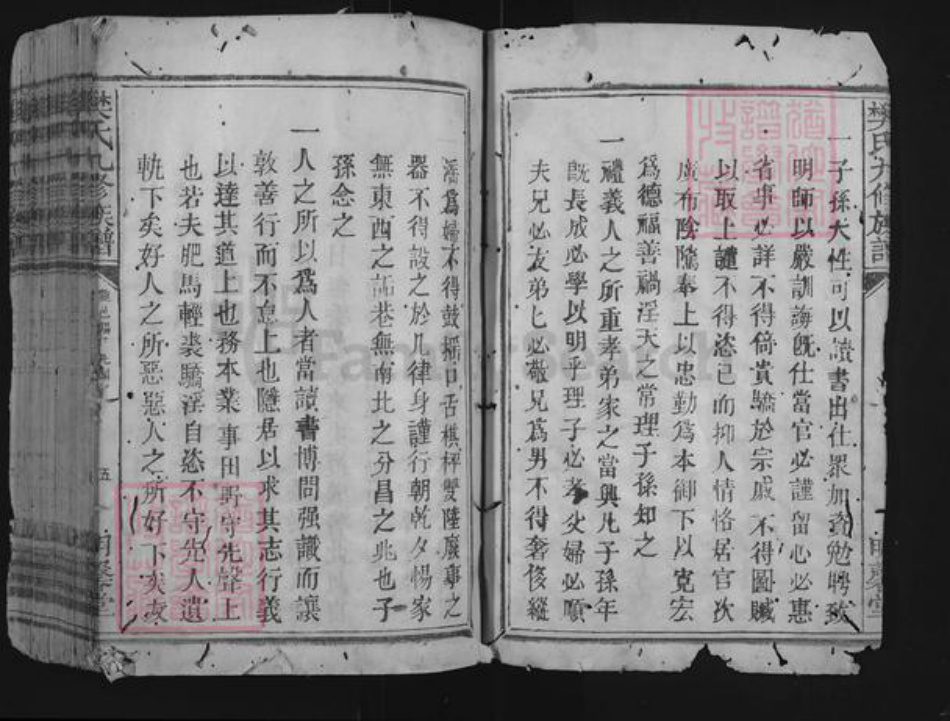 樊氏九修族譜
一子孫天性可以讀書出仕眾加資勉聘致
明師以嚴訓誨旣仕當官必謹留心必惠
省事必詳不得倚貴驕於宗戚不得圖贓
以取上譴不得恣已而抑人情恪居官次
廣布陰隲奉上以忠勤爲本御下以寬宏
爲德福善禍淫天之常理子孫知之
一禮義人之所重孝弟家之當興凡子孫年
旣長成必學以明乎理子必孝父婦必順
夫兄必友弟匕必敬兄爲男不得奢侈縱
爲婦不得鼓搖口舌棋枰雙陸廢事之
器不得設之於几律身謹行朝乾夕惕家
無東西之話巷無南北之分昌之兆也子
孫念之
一人之所以爲人者當讀書博問强識而讓
敦善行而不怠上也隱居以求其志行義
以達其道上也務本業事田疇守先聲上
也若夫肥馬輕裘驕淫自恣不守先人遺
軌下矣好人之所惡惡人之所好下矣
樊氏九修族譜
五
FamilySearch